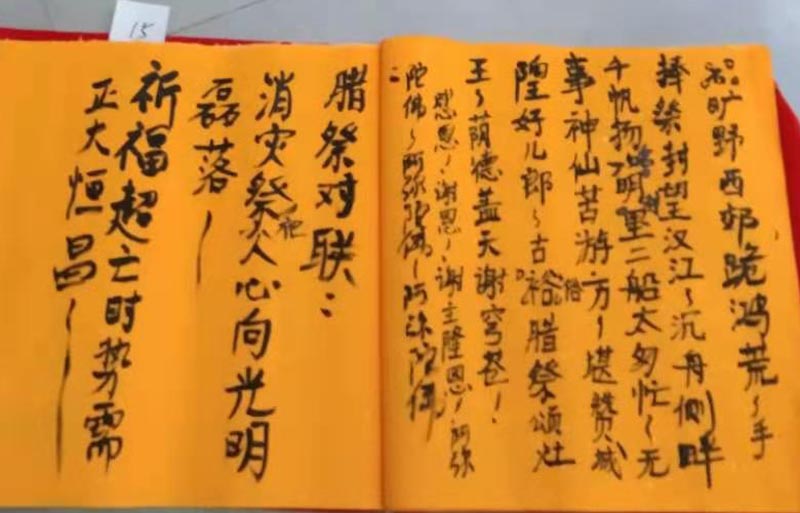 15
旷野西郊跪鸿荒～手
捧祭封望汉江～沉舟侧畔
千帆扬明里二船太匆忙～无
事神仙苦游方～堪赞减
隍好儿郎～古裕腊祭颂灶
王～荫德盖天谢穹苍！
感恩！谢恩！谢主隆恩！阿弥
陀佛～阿弥陀佛～阿弥陀佛
腊祭对联：
消灾祭祀人心向光明
磊落～
祈福超亡时势需
正大恒昌～